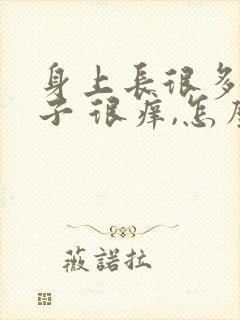 身上長很多
子很痒,怎
薇諾拉